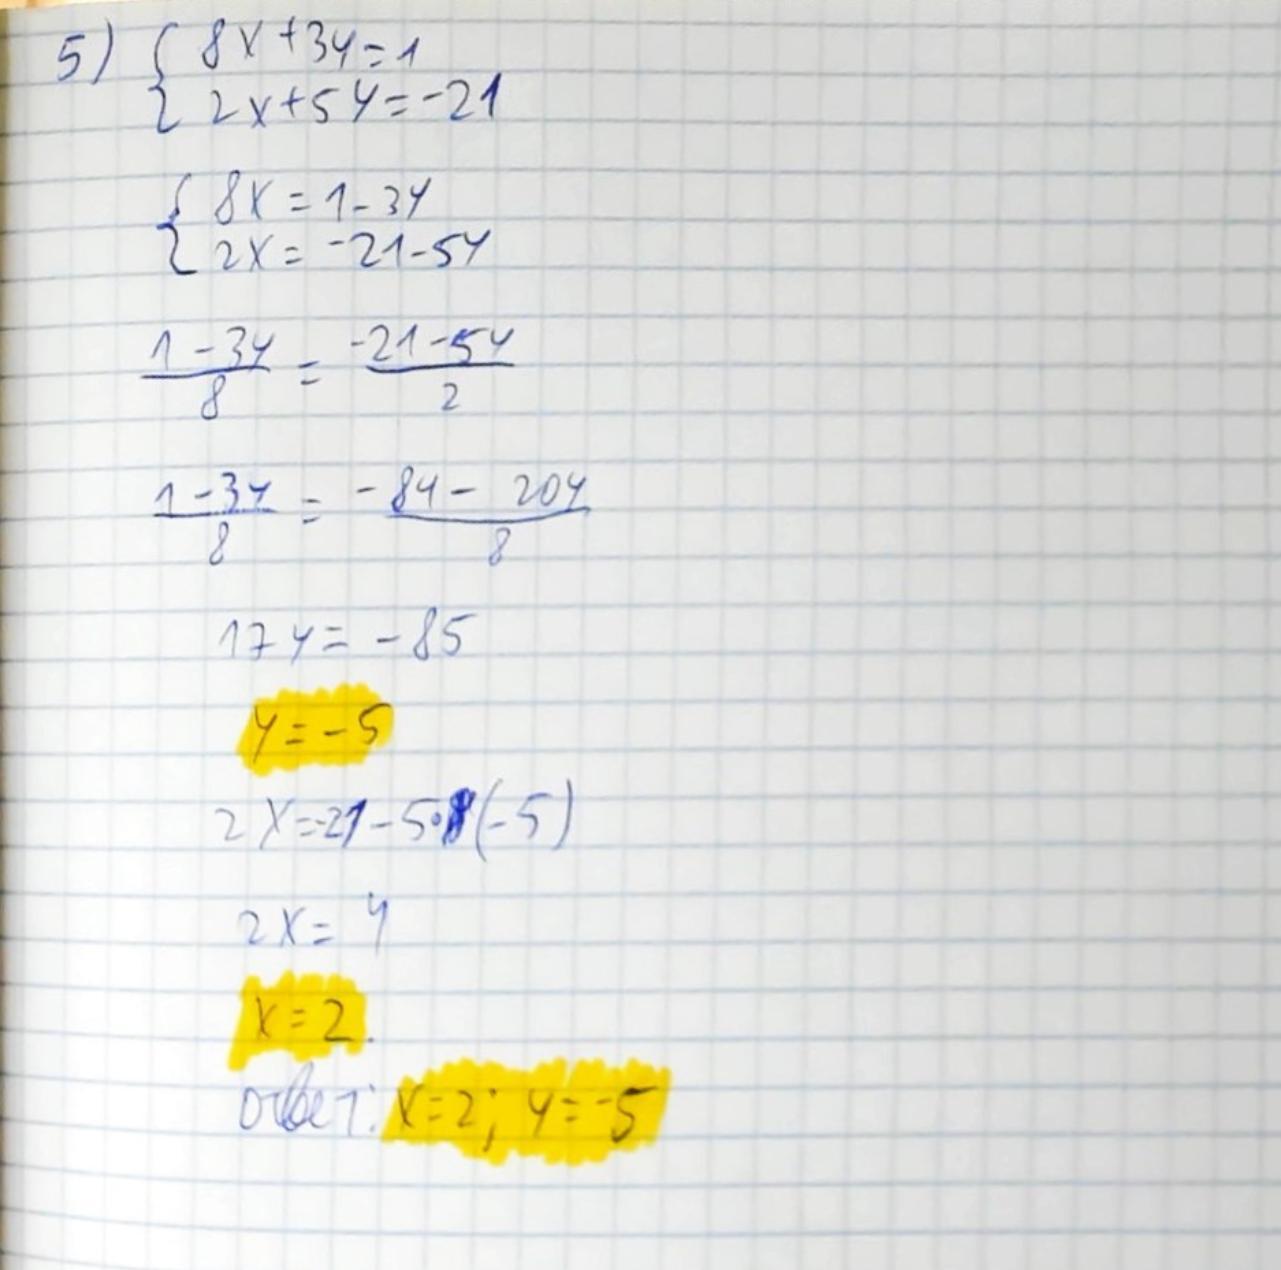 5) { 8x+3y=1
2x+5y=-21
{ 8x=1-3y
2x=-21-5y
(1-3y)/8 = (-21-5y)/2
(1-3y)/8 = (-84-20y)/8
17y=-85
y=-5
2x=-21-5·(-5)
2x=4
x=2.
Ответ: x=2; y=-5